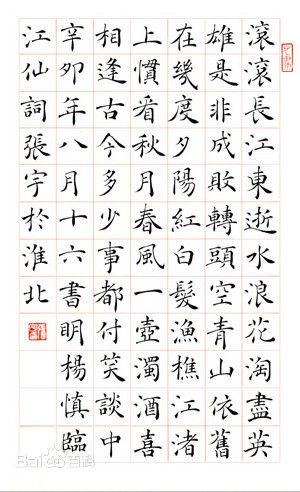 滾滾長江東逝水浪花淘盡英
雄是非成敗轉頭空青山依舊
在幾度夕陽紅白髮漁樵江渚
上慣看秋月春風一壺濁酒喜
相逢古今多少事都付笑談中
辛卯年八月十六書明楊慎臨
江仙詞張宇於淮北
Bai百科